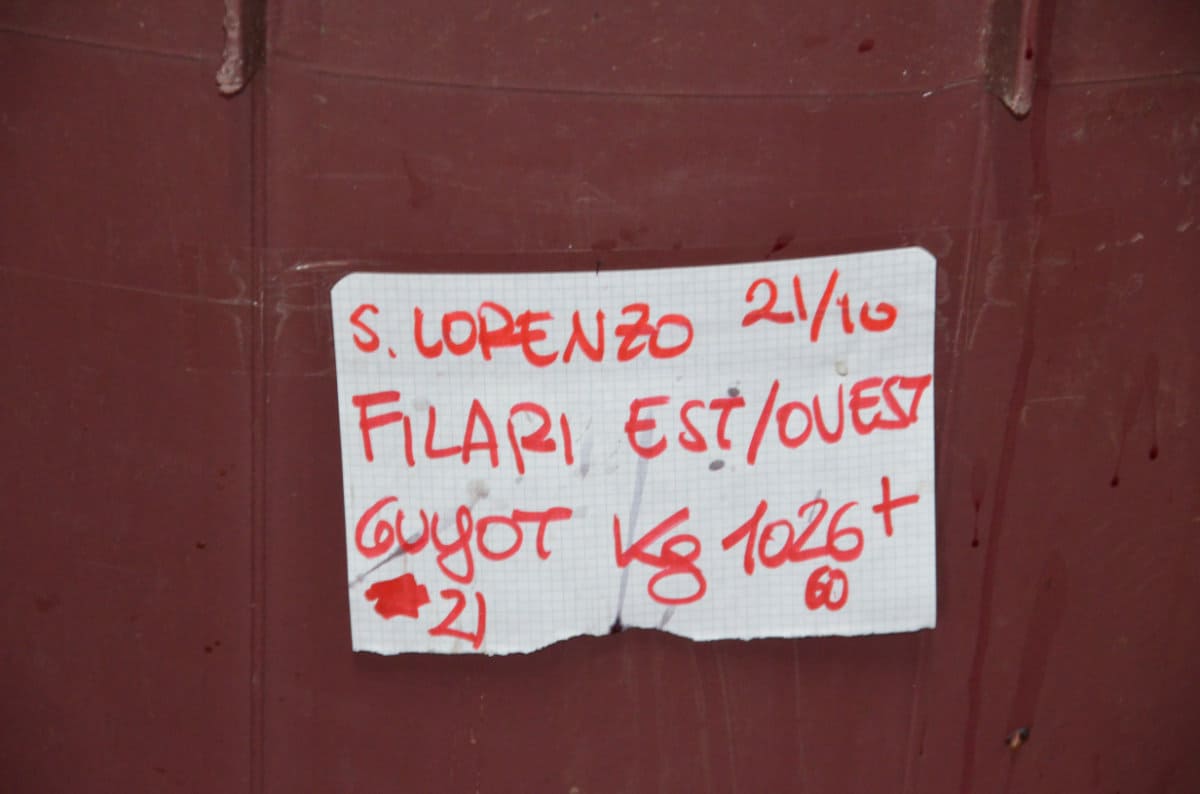 S. LORENZO 21/10
FILARI EST/OVEST
GUYOT Kg 1026+
21 60